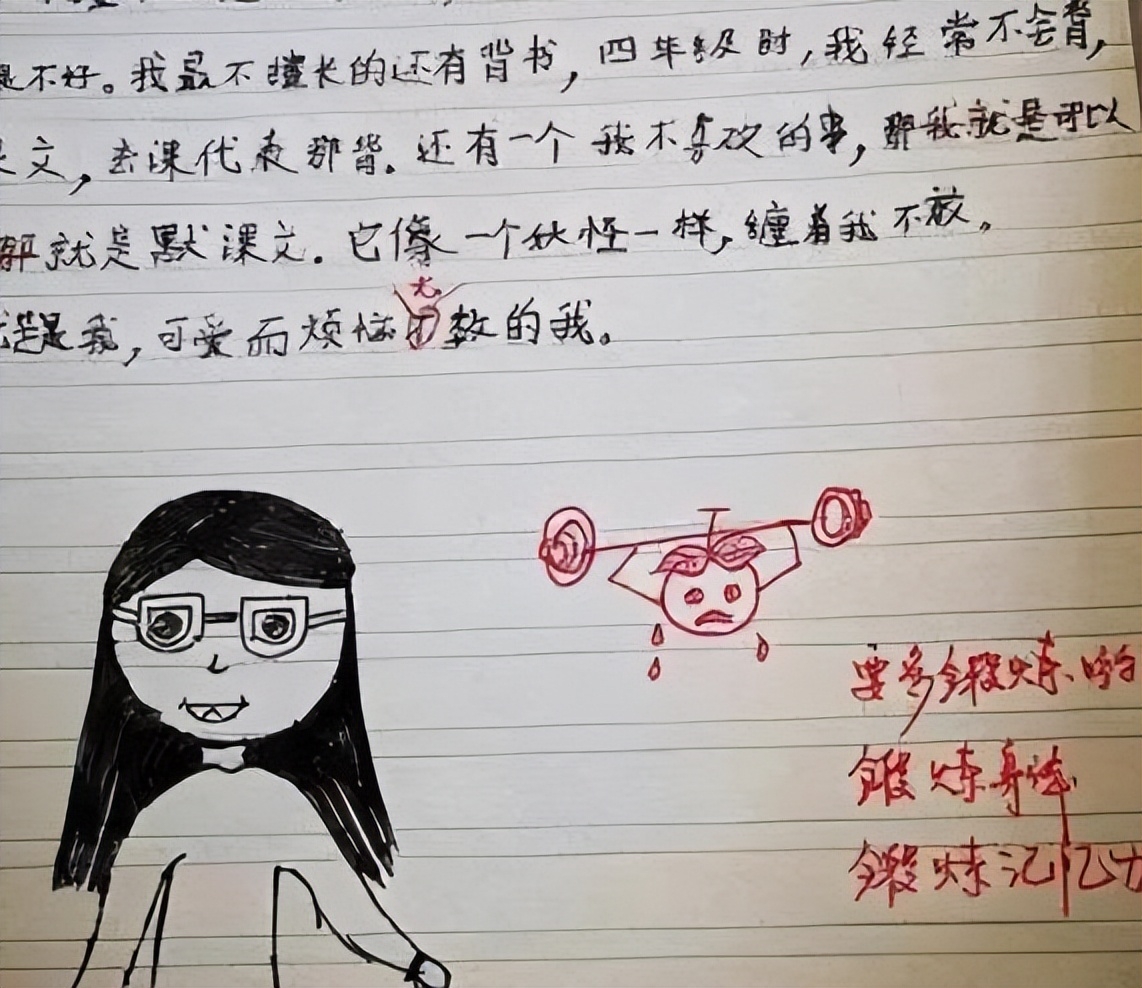 是不好。我最不擅长的还有背书，四年级时，我经常不会背，
文，去课代表那背。还有一个我不喜欢的事，那我就是可以
那就是默课文。它像一个妖怪一样，缠着我不放。
无
就是我，可爱而烦恼数的我。
要多锻炼哟
锻炼身体
锻炼记忆力